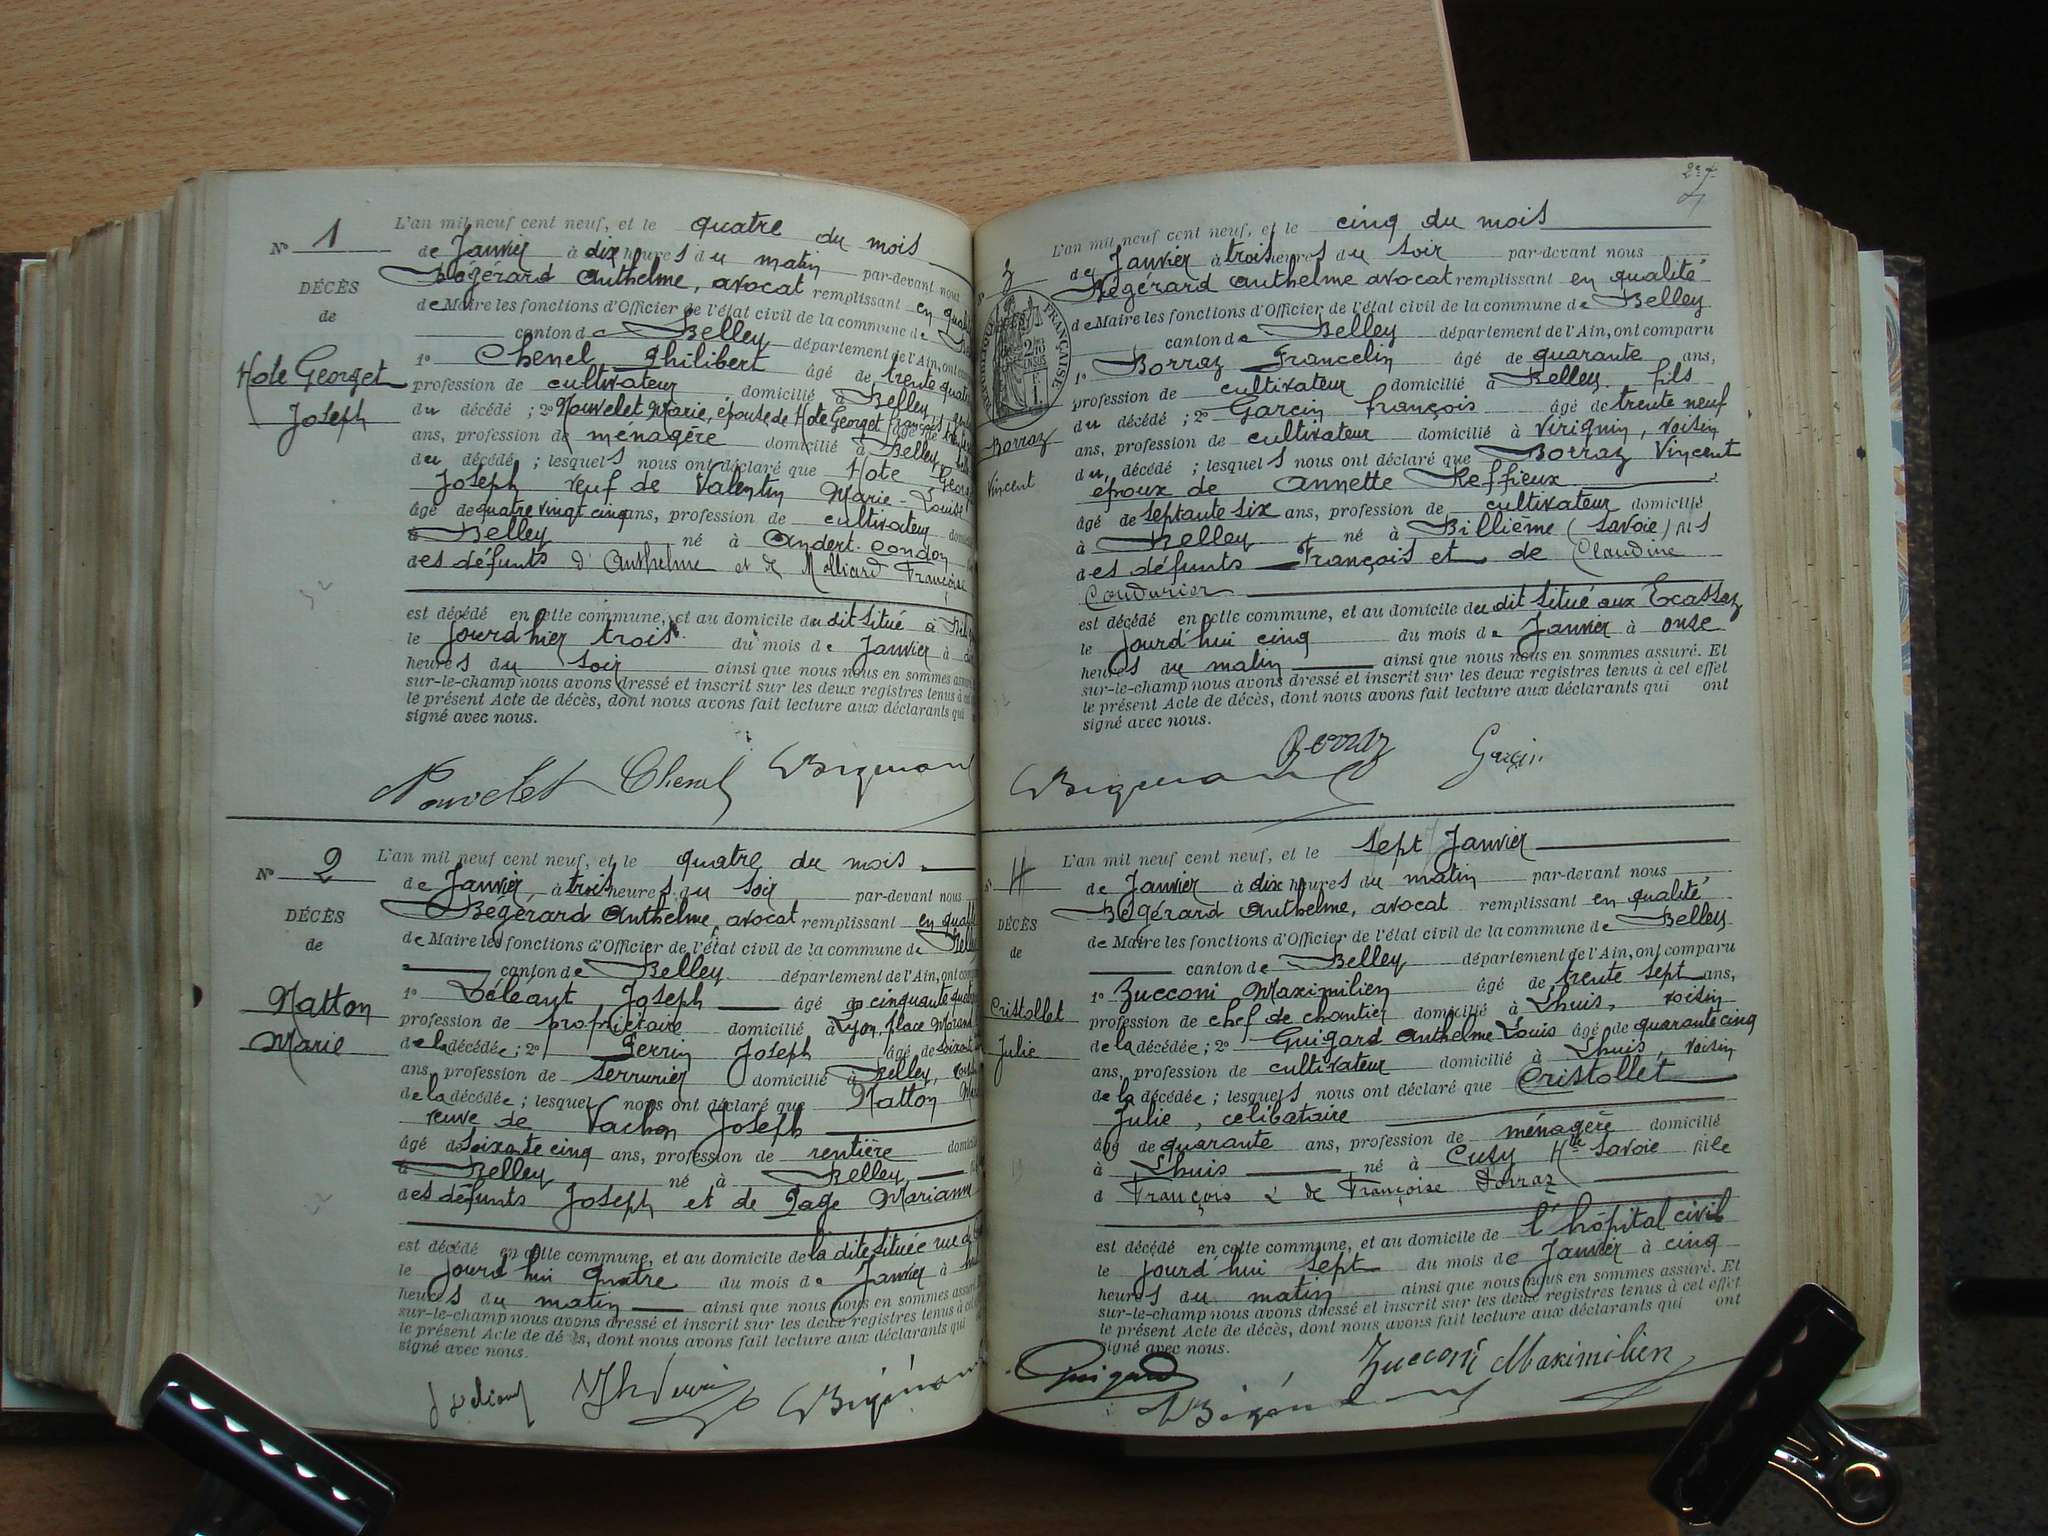 N° 1
DÉCÈS
de
Hote Georget
Joseph
L'an mil neuf cent neuf, et le quatre du mois
de Janvier à dix heures du matin par-devant nous
Bégérard Anthelme, avocat remplissant en
de Maire les fonctions d'Officier de l'état civil de la commune de
canton de Belley département de l'Ain, ont
1° Chenel Philibert âgé de trente
profession de cultivateur domicilié à Belley
du décédé ; 2° Nouvelet Marie, épouse de Hote Georget François
ans, profession de ménagère domicilié à Belley
du décédé ; lesquels nous ont déclaré que Hote
Joseph veuf de Valentin Marie-Louise
âgé de quatre vingt cinq ans, profession de cultivateur
à Belley né à Andert-Condon
des défunts d'Anthelme et de Molliard
est décédé en cette commune, et au domicile du dit situé à
le jourd'hier trois du mois de Janvier à
heures du soir ainsi que nous nous en sommes assuré
sur-le-champ nous avons dressé et inscrit sur les deux registres tenus à
le présent Acte de décès, dont nous avons fait lecture aux déclarants qui
signé avec nous.
Nouvelet Chenel
N° 2
DÉCÈS
de
Matton
Marie
L'an mil neuf cent neuf, et le quatre du mois
de Janvier à trois heures du soir par-devant nous
Bégérard Anthelme, avocat remplissant en
de Maire les fonctions d'Officier de l'état civil de la commune de
canton de Belley département de l'Ain, ont
1° Déléant Joseph âgé de cinquante
profession de propriétaire domicilié à Lyon, place Morand
de la décédée ; 2° Perrin Joseph âgé de
ans, profession de serrurier domicilié à Belley,
de la décédée ; lesquels nous ont déclaré que Matton
veuve de Vachon Joseph
âgé de soixante cinq ans, profession de rentière
à Belley né à Belley
des défunts Joseph et de Page Marianne
est décédé en cette commune, et au domicile de la dite située rue
le jourd'hui quatre du mois de Janvier à
heures du matin ainsi que nous nous en sommes assuré
sur-le-champ nous avons dressé et inscrit sur les deux registres tenus à
le présent Acte de décès, dont nous avons fait lecture aux déclarants qui
signé avec nous.
3
FRANÇAISE
Borraz
Vincent
L'an mil neuf cent neuf, et le cinq du mois
de Janvier à trois heures du soir par-devant nous
Bégérard Anthelme avocat remplissant en qualité
de Maire les fonctions d'Officier de l'état civil de la commune de Belley
canton de Belley département de l'Ain, ont comparu
1° Borraz Francelin âgé de quarante ans,
profession de cultivateur domicilié à Belley fils
du décédé ; 2° Garcin François âgé de trente neuf
ans, profession de cultivateur domicilié à Virignin, voisin
du décédé ; lesquels nous ont déclaré que Borraz Vincent
époux de Annette Reffieux
âgé de septante six ans, profession de cultivateur domicilié
à Belley né à Billième (Savoie) fils
des défunts François et de Claudine
Coudurier
est décédé en cette commune, et au domicile du dit situé aux Ecassaz
le jourd'hui cinq du mois de Janvier à onse
heures du matin ainsi que nous nous en sommes assuré. Et
sur-le-champ nous avons dressé et inscrit sur les deux registres tenus à cet effet
le présent Acte de décès, dont nous avons fait lecture aux déclarants qui ont
signé avec nous.
Borraz Garcin
4
DÉCÈS
de
Cristollet
Julie
L'an mil neuf cent neuf, et le sept Janvier
de Janvier à dix heures du matin par-devant nous
Bégérard Anthelme, avocat remplissant en qualité
de Maire les fonctions d'Officier de l'état civil de la commune de Belley
canton de Belley département de l'Ain, ont comparu
1° Zucconi Maximilien âgé de trente sept ans,
profession de chef de chantier domicilié à Lhuis, voisin
de la décédée ; 2° Guigard Anthelme Louis âgé de quarante cinq
ans, profession de cultivateur domicilié à Lhuis, voisin
de la décédée ; lesquels nous ont déclaré que Cristollet
Julie, célibataire
âgé de quarante ans, profession de ménagère domicilié
à Lhuis né à Cusy Hte Savoie fille
d François & de Françoise
est décédé en cette commune, et au domicile de l'hôpital civil
le jourd'hui sept du mois de Janvier à cinq
heures du matin ainsi que nous nous en sommes assuré. Et
sur-le-champ nous avons dressé et inscrit sur les deux registres tenus à cet effet
le présent Acte de décès, dont nous avons fait lecture aux déclarants qui ont
signé avec nous.
Guigard Zucconi Maximilien